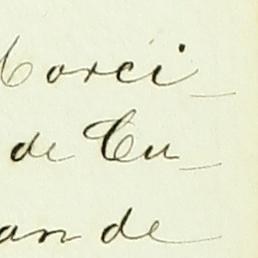 Morci_
de Cu_
an de